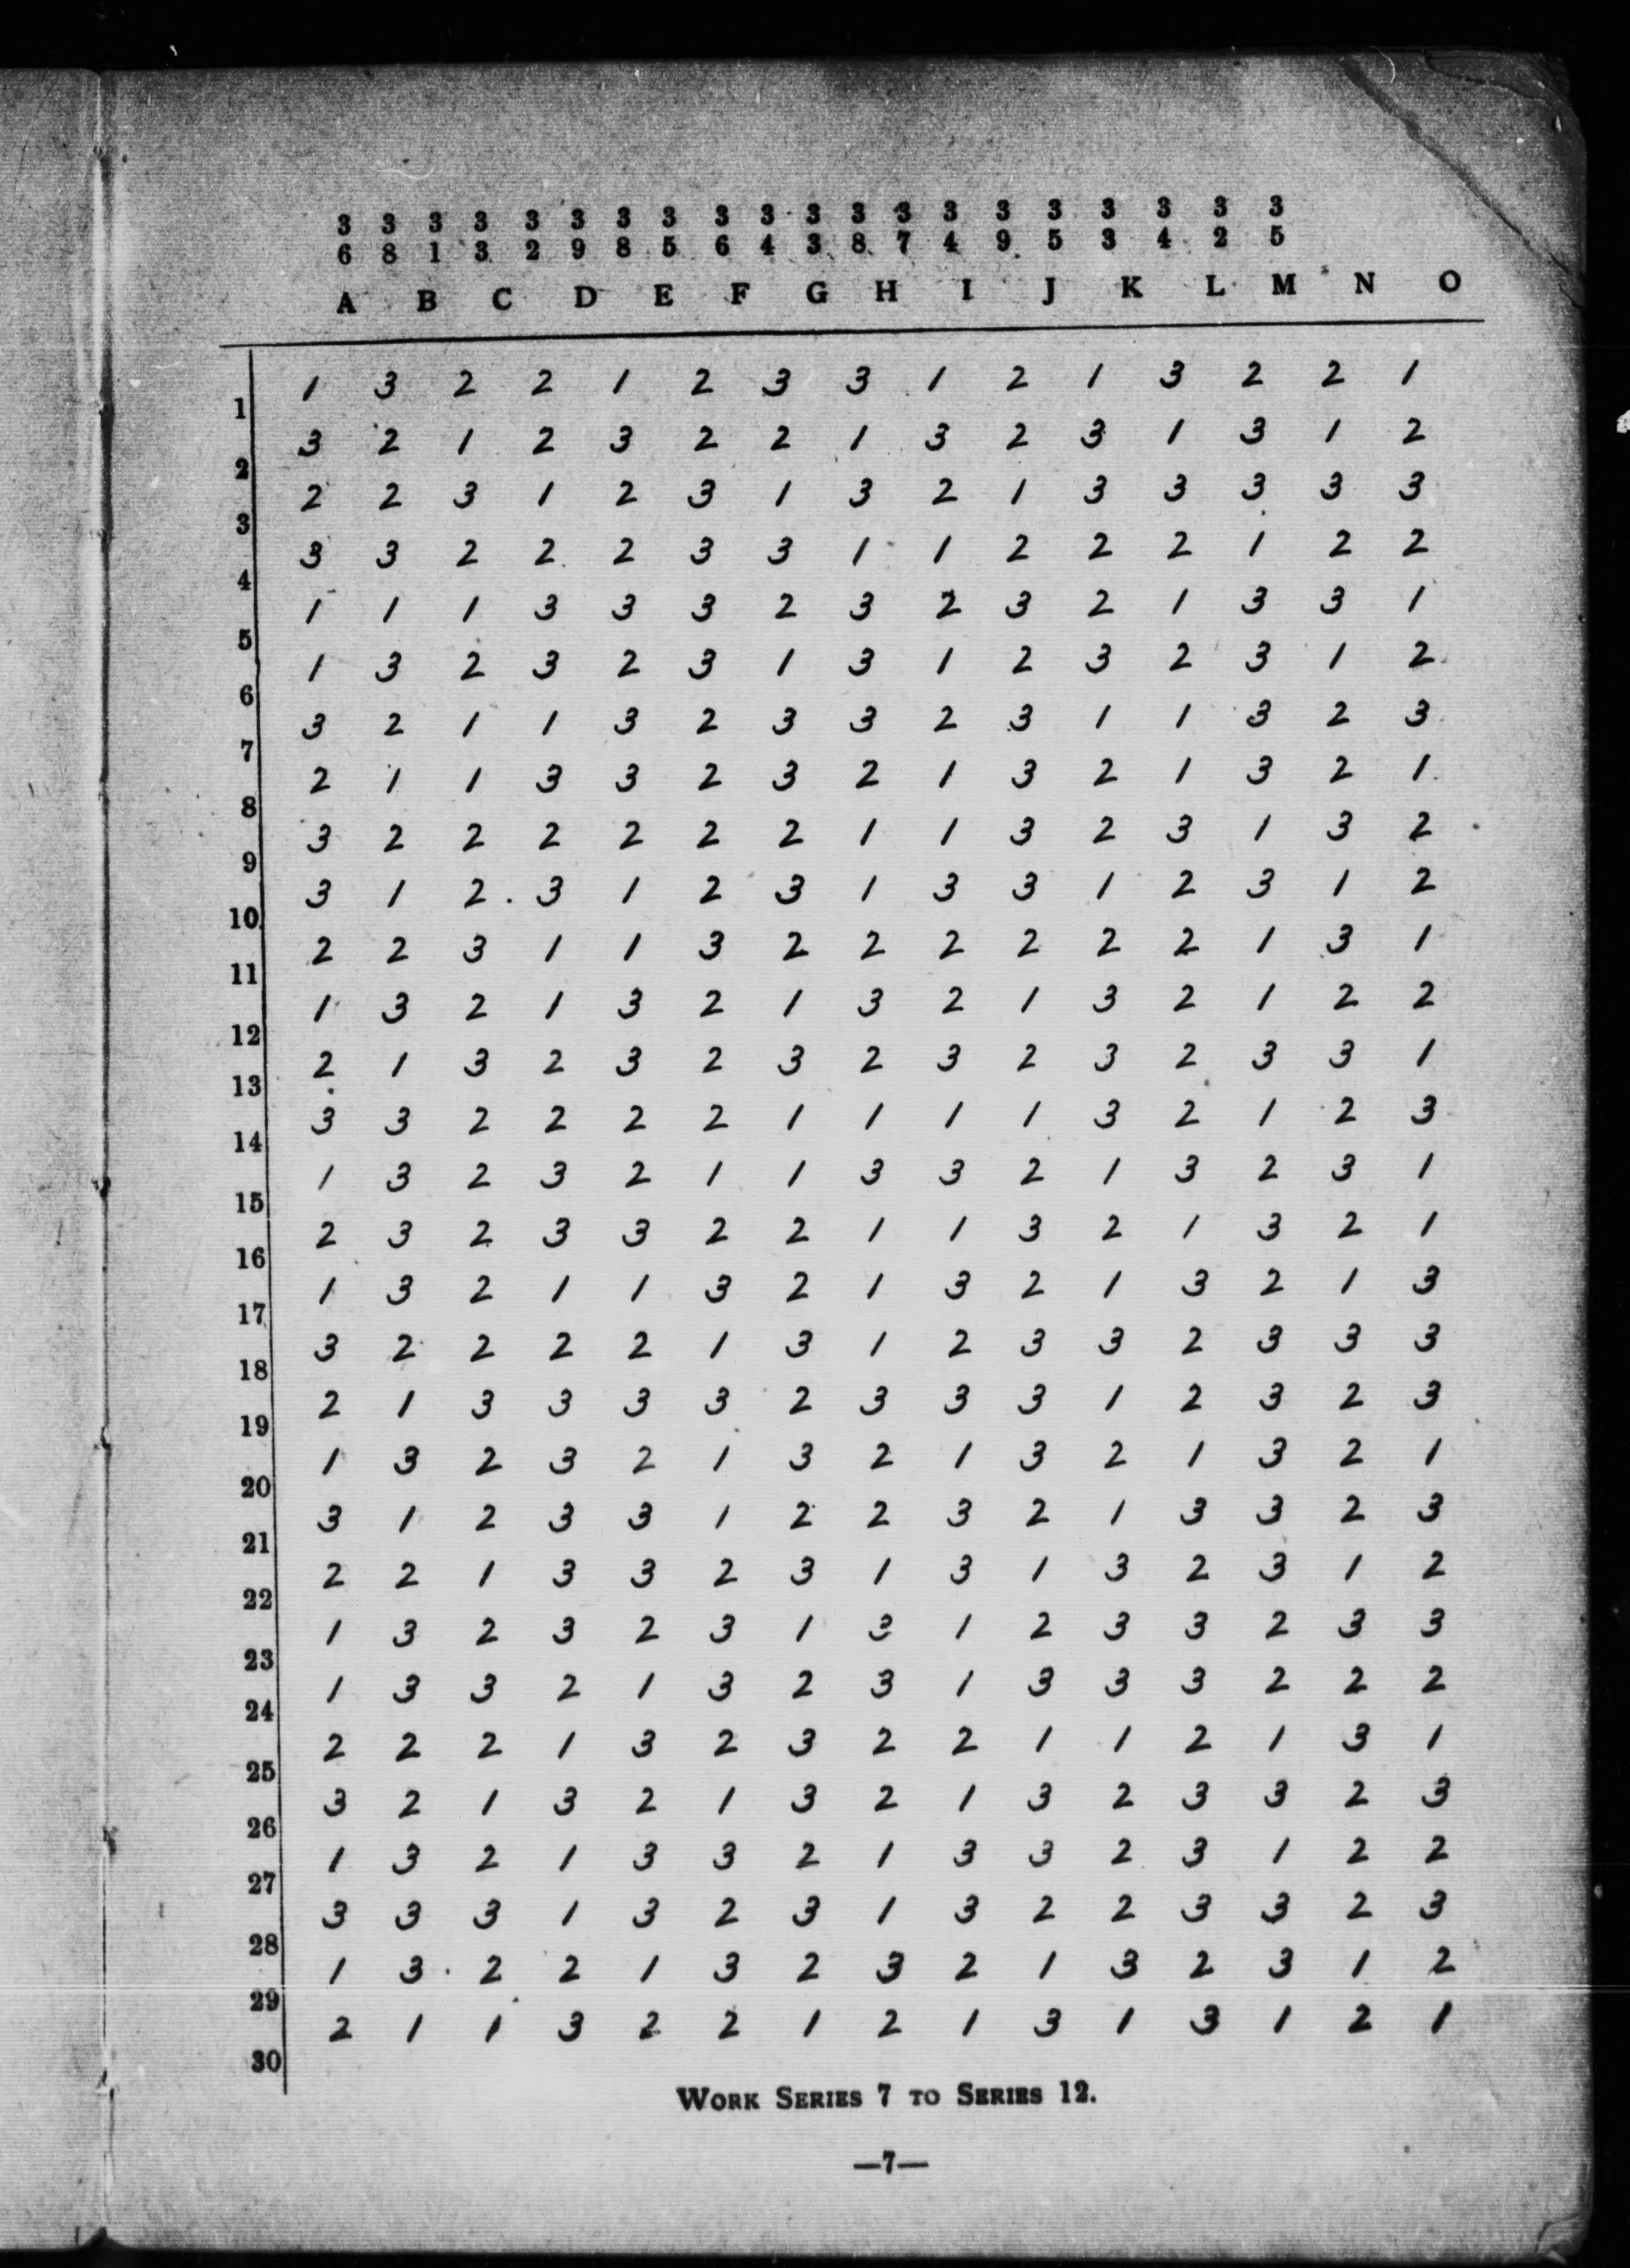 3 3 3 3 3 3 3 3 3 3 3 3 3 3 3 3 3 3 3 3
6 8 1 3 2 9 8 5 6 4 3 8 7 4 9 5 3 4 2 5
A B C D E F G H I J K L M N O
1 3 2 2 1 2 3 3 1 2 1 3 2 2 1
1
3 2 1 2 3 2 2 1 3 2 3 1 3 1 2
2
2 2 3 1 2 3 1 3 2 1 3 3 3 3 3
3
3 3 2 2 2 3 3 1 1 2 2 2 1 2 2
4
1 1 1 3 3 3 2 3 2 3 2 1 3 3 1
5
1 3 2 3 2 3 1 3 1 2 3 2 3 1 2
6
3 2 1 1 3 2 3 3 2 3 1 1 3 2 3
7
2 1 1 3 3 2 3 2 1 3 2 1 3 2 1
8
3 2 2 2 2 2 2 1 1 3 2 3 1 3 2
9
3 1 2 3 1 2 3 1 3 3 1 2 3 1 2
10
2 2 3 1 1 3 2 2 2 2 2 2 1 3 1
11
1 3 2 1 3 2 1 3 2 1 3 2 1 2 2
12
2 1 3 2 3 2 3 2 3 2 3 2 3 3 1
13
3 3 2 2 2 2 1 1 1 1 3 2 1 2 3
14
1 3 2 3 2 1 1 3 3 2 1 3 2 3 1
15
2 3 2 3 3 2 2 1 1 3 2 1 3 2 1
16
1 3 2 1 1 3 2 1 3 2 1 3 2 1 3
17
3 2 2 2 2 1 3 1 2 3 3 2 3 3 3
18
2 1 3 3 3 3 2 3 3 3 1 2 3 2 3
19
1 3 2 3 2 1 3 2 1 3 2 1 3 2 1
20
3 1 2 3 3 1 2 2 3 2 1 3 3 2 3
21
2 2 1 3 3 2 3 1 3 1 3 2 3 1 2
22
1 3 2 3 2 3 1 3 1 2 3 3 2 3 3
23
1 3 3 2 1 3 2 3 1 3 3 3 2 2 2
24
2 2 2 1 3 2 3 2 2 1 1 2 1 3 1
25
3 2 1 3 2 1 3 2 1 3 2 3 3 2 3
26
1 3 2 1 3 3 2 1 3 3 2 3 1 2 2
27
3 3 3 1 3 2 3 1 3 2 2 3 3 2 3
28
1 3 2 2 1 3 2 3 2 1 3 2 3 1 2
29
2 1 1 3 2 2 1 2 1 3 1 3 1 2 1
30
WORK SERIES 7 TO SERIES 12.
—7—